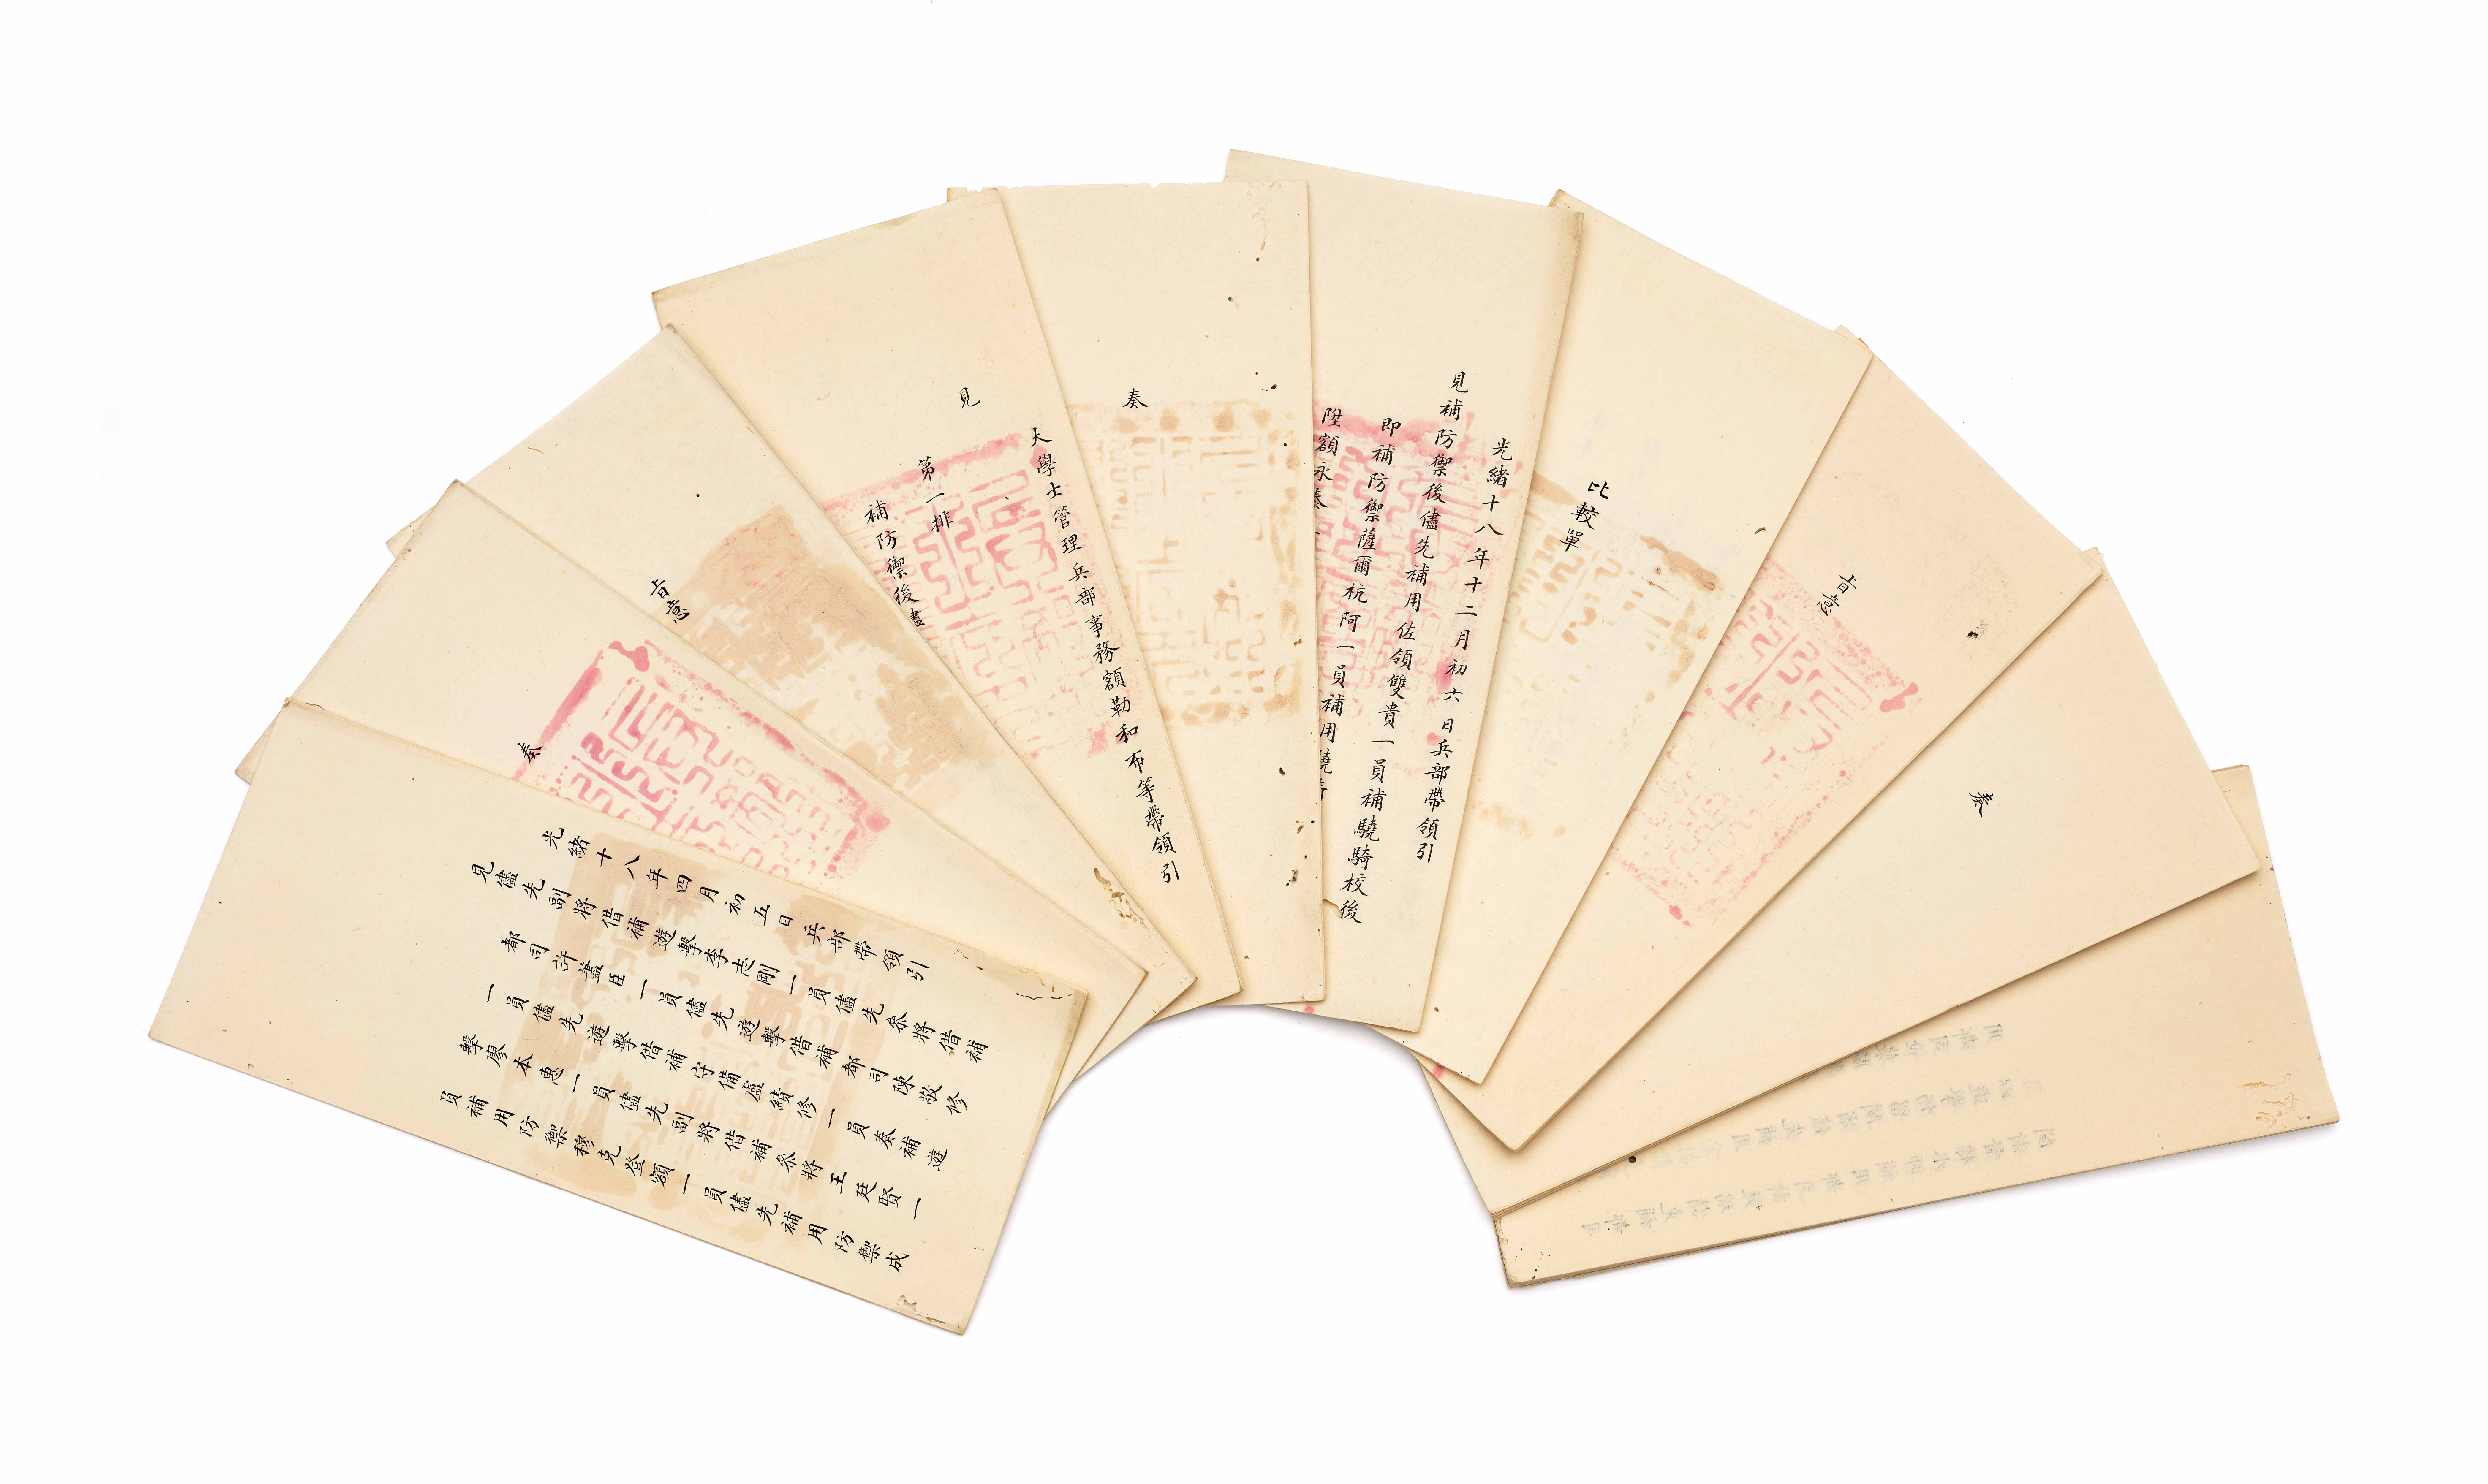 光緒十八年四月初五日兵部帶領引
見儘先副將借補遊擊李志剛一員儘先參將借補
都司許藎臣一員儘先遊擊借補都司陳敬修
一員儘先遊擊借補守備盧績修一員奏補遊
擊廖本惠一員儘先副將借補參將王廷賢一
員補用防禦穆克登額一員儘先補用防禦成
奏
旨意
大學士管理兵部事務額勒和布等帶領引
見
第一排
補防禦後儘
奏
光緒十八年十二月初六日兵部帶領引
見補防禦後儘先補用佐領雙貴一員補驍騎校後
即補防禦薩爾杭阿一員補用驍
陞額永
比較單
旨意
奏